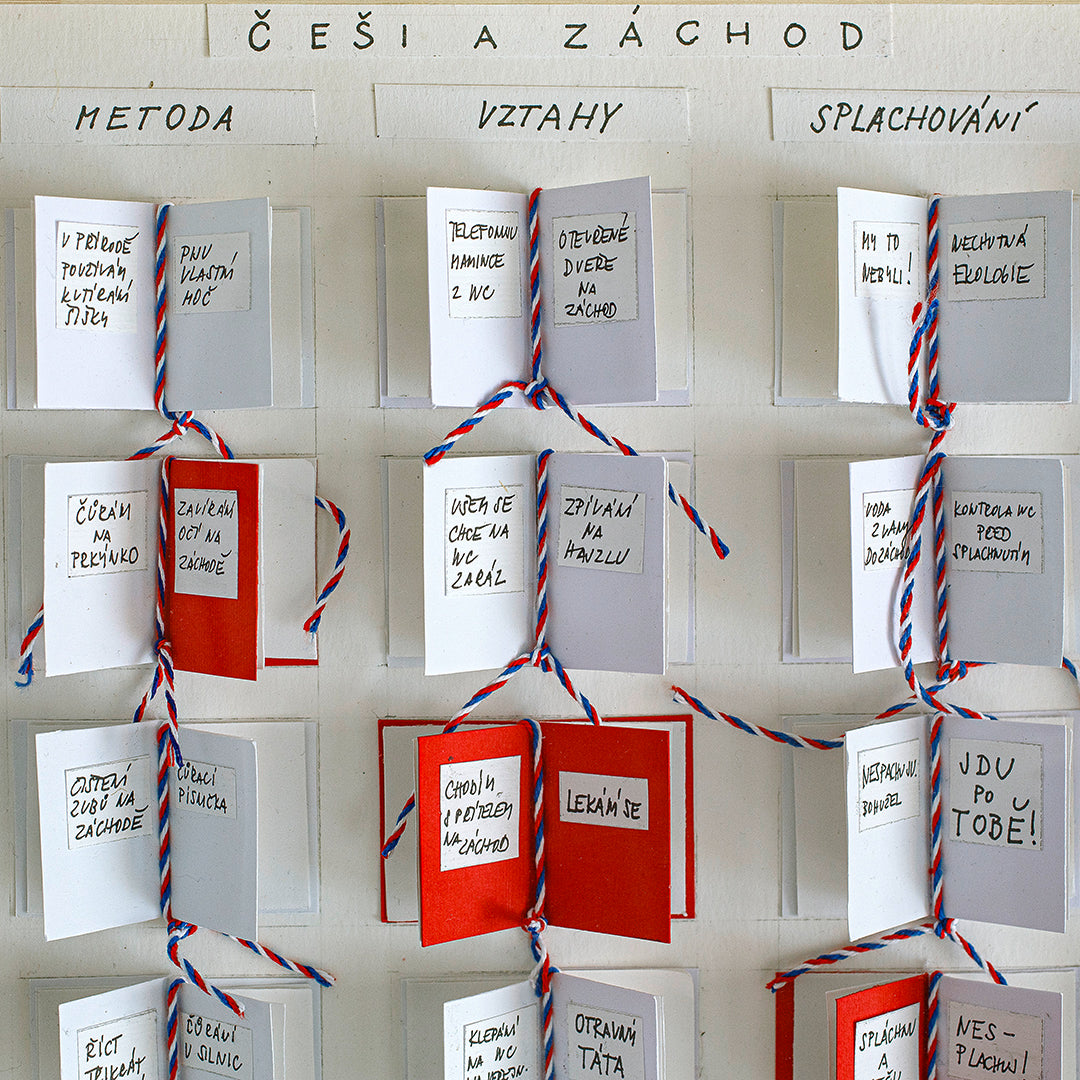 ČEŠI A ZÁCHOD
METODA
VZTAHY
SPLACHOVÁNÍ
V PŘÍRODĚ
POUŽÍVÁM
KUTÍRÁNÍ
ŠIŠKY
PIJU
VLASTNÍ
MOČ
TELEFONUJU
MAMINCE
Z WC
OTEVŘENÉ
DVEŘE
NA
ZÁCHOD
MY TO
NEBYLI!
NECHUTNÁ
EKOLOGIE
ČŮRÁM
NA
PRKÝNKO
ZAVÍRÁNÍ
OČÍ NA
ZÁCHODĚ
VŠEM SE
CHCE NA
WC
ZARÁZ
ZPÍVÁNÍ
NA
HAJZLU
VODA
Z VANY
DO ZÁCHOD
KONTROLA WC
PŘED
SPLACHNUTÍM
ČISTĚNÍ
ZUBŮ NA
ZÁCHODĚ
ČŮRACÍ
PÍSNIČKA
CHODÍM
S PŘÍTELEM
NA ZÁCHOD
LEKÁM SE
NESPACHUJU.
BOHUŽEL
JDU
PO
TOBĚ!
ŘÍCT
TŘIKRÁT
ČŮRÁNÍ
V SILNIC
KLEPÁNÍ
NA WC
OTRAVNÝ
TÁTA
SPLÁCHNU
A
NES-
PLACHUJ!